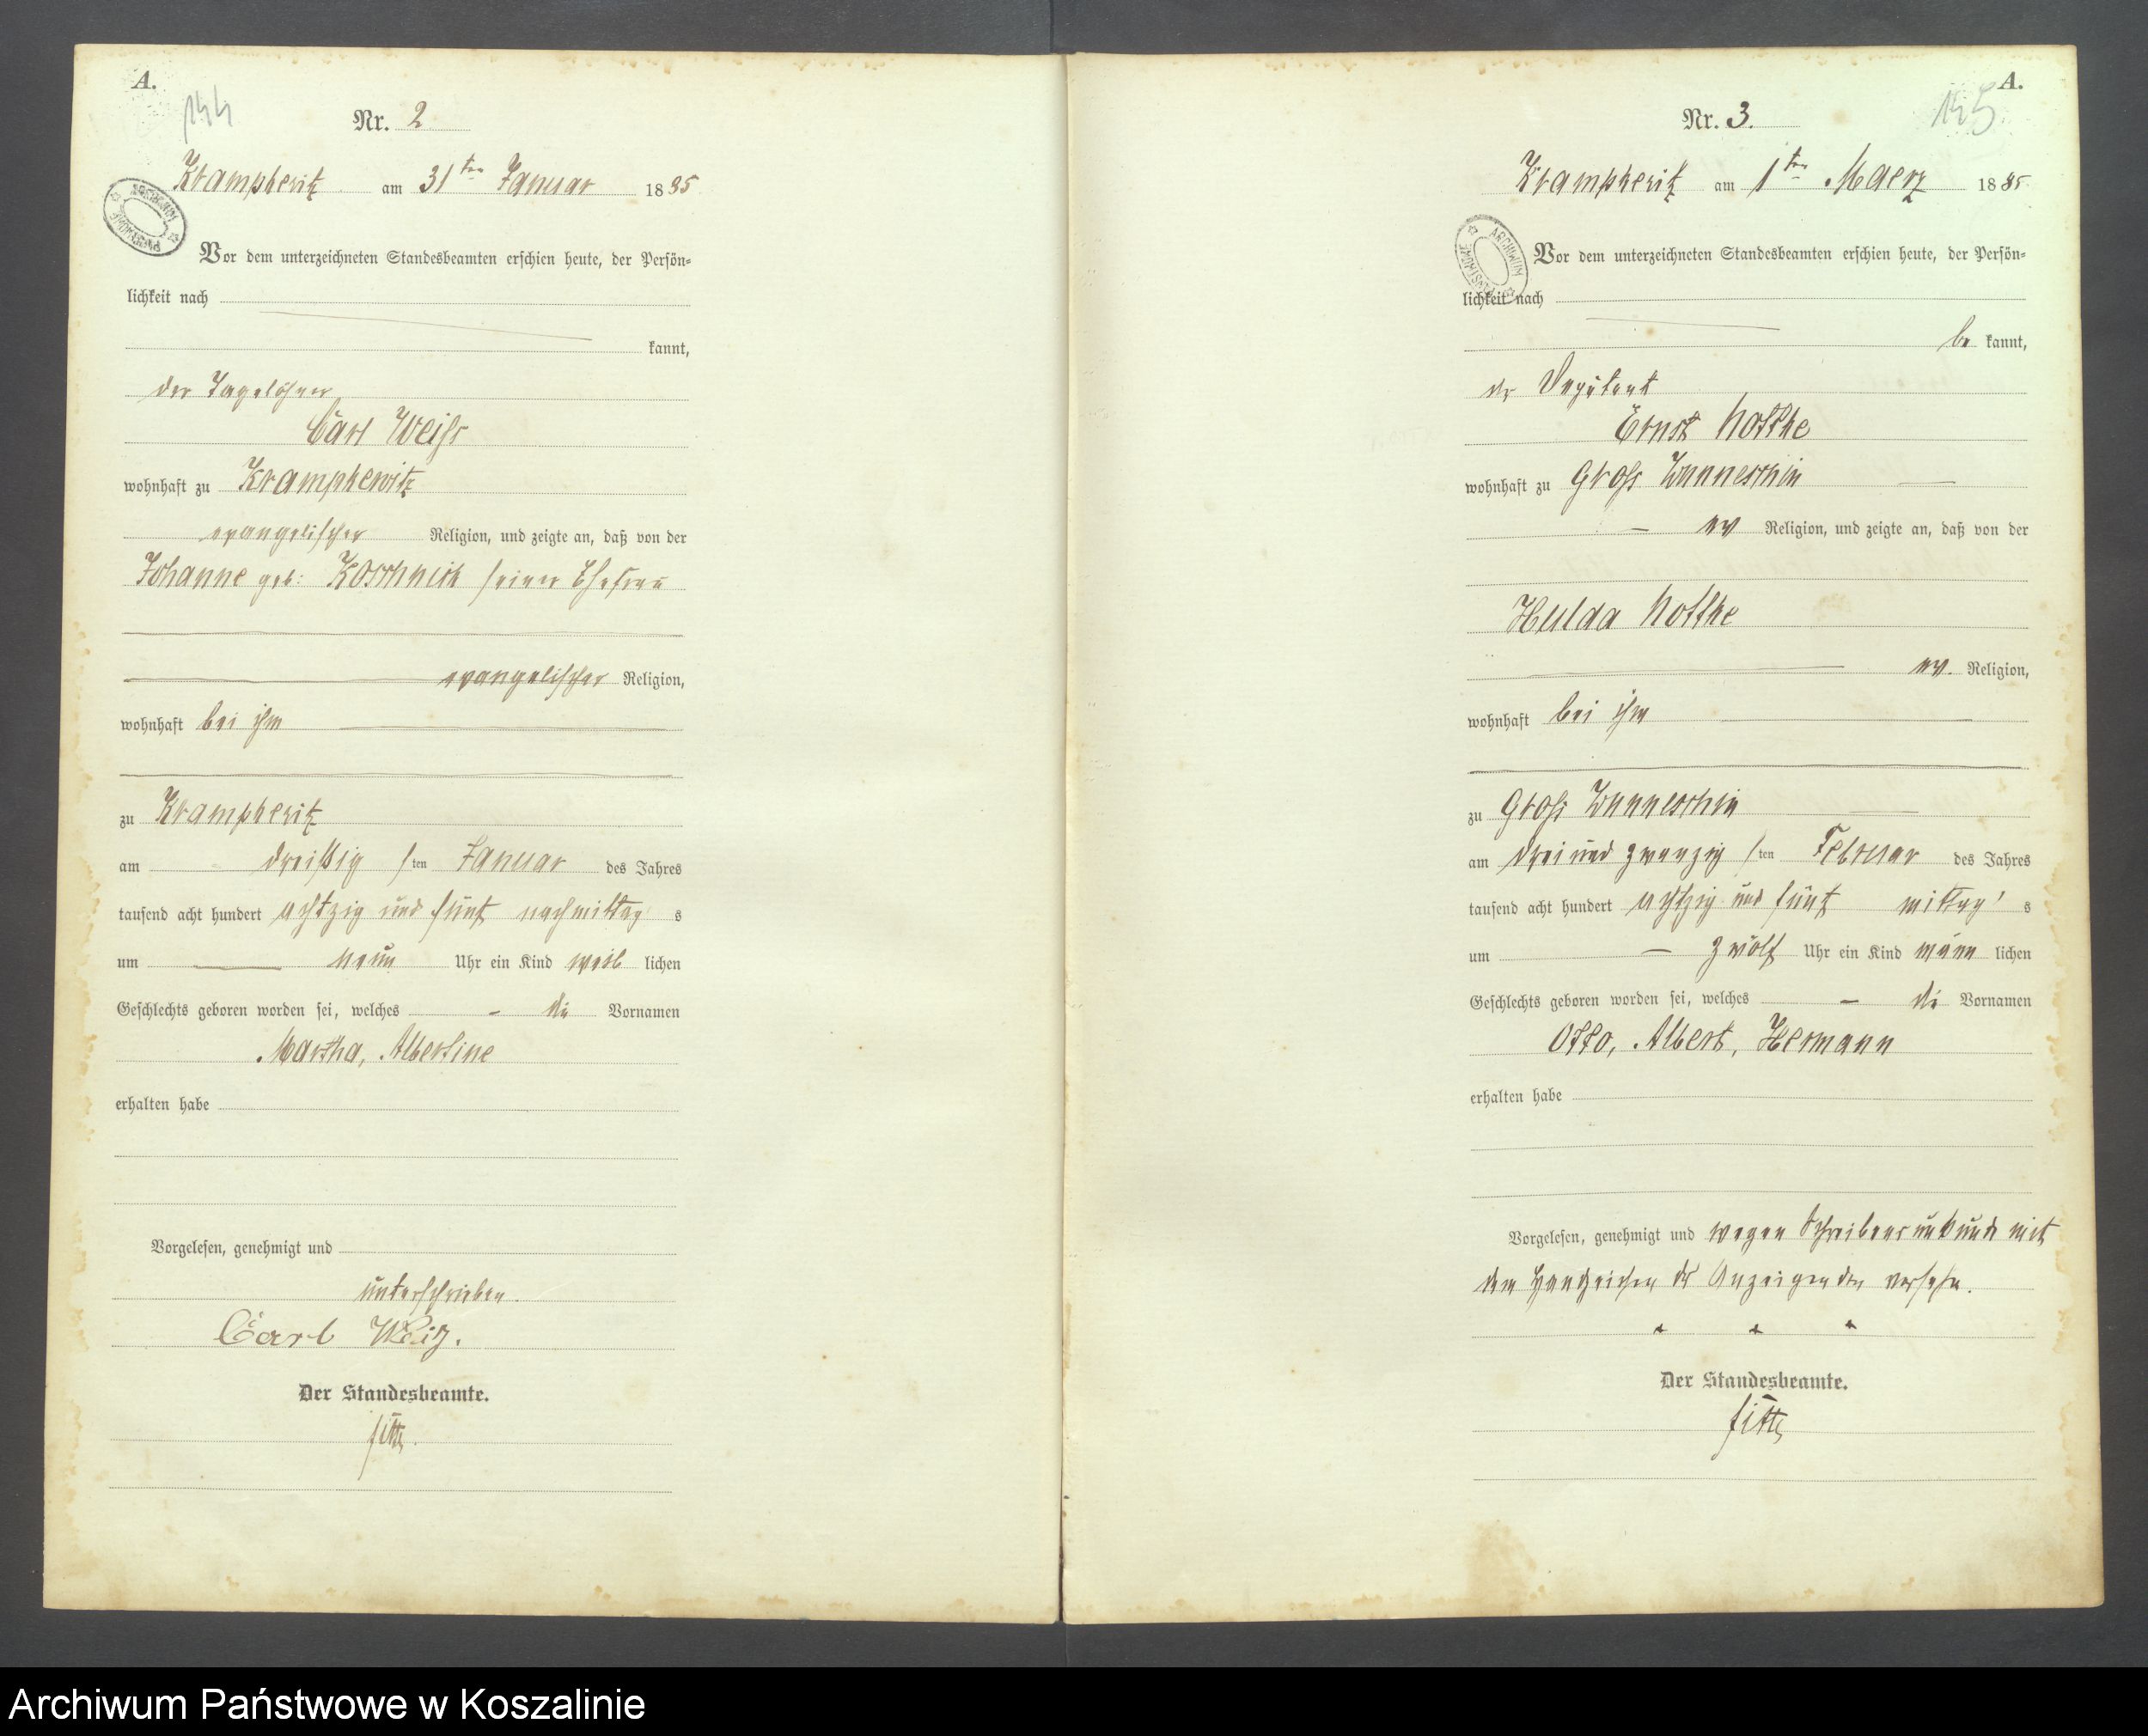 A.
144
Nr. 2
Krampkewitz am 31ten Januar 1885
ARCHIWUM PAŃSTWOWE
Vor dem unterzeichneten Standesbeamten erschien heute, der Persön-
lichkeit nach
kannt,
der Tagelöhner
Carl Weiss
wohnhaft zu Krampkewitz
evangelischer Religion, und zeigte an, daß von der
Johanne geb: Koschnick seiner Ehefrau
evangelischer Religion,
wohnhaft bei ihm
zu Krampkewitz
am dreißig sten Januar des Jahres
tausend acht hundert achtzig und fünf nachmittag s
um neun Uhr ein Kind weib lichen
Geschlechts geboren worden sei, welches die Vornamen
Martha, Albertine
erhalten habe
Vorgelesen, genehmigt und
unterschrieben.
Carl Weiß.
Der Standesbeamte.
A.
145
Nr. 3.
Krampkewitz am 1ten Maerz 1885
ARCHIWUM PAŃSTWOWE
Vor dem unterzeichneten Standesbeamten erschien heute, der Persön-
lichkeit nach
be kannt,
der Deputant
Ernst Nottke
wohnhaft zu Gross Wunneschin
ev Religion, und zeigte an, daß von der
Hulda Nottke
ev. Religion,
wohnhaft bei ihm
zu Gross Wunneschin
am drei und zwanzig sten Februar des Jahres
tausend acht hundert achtzig und fünf mittag s
um zwölf Uhr ein Kind männ lichen
Geschlechts geboren worden sei, welches die Vornamen
Otto, Albert, Hermann
erhalten habe
Vorgelesen, genehmigt und wegen Schreibensunkunde mit
dem Handzeichen des Anzeigenden versehn.
+ + +
Der Standesbeamte.
Archiwum Państwowe w Koszalinie